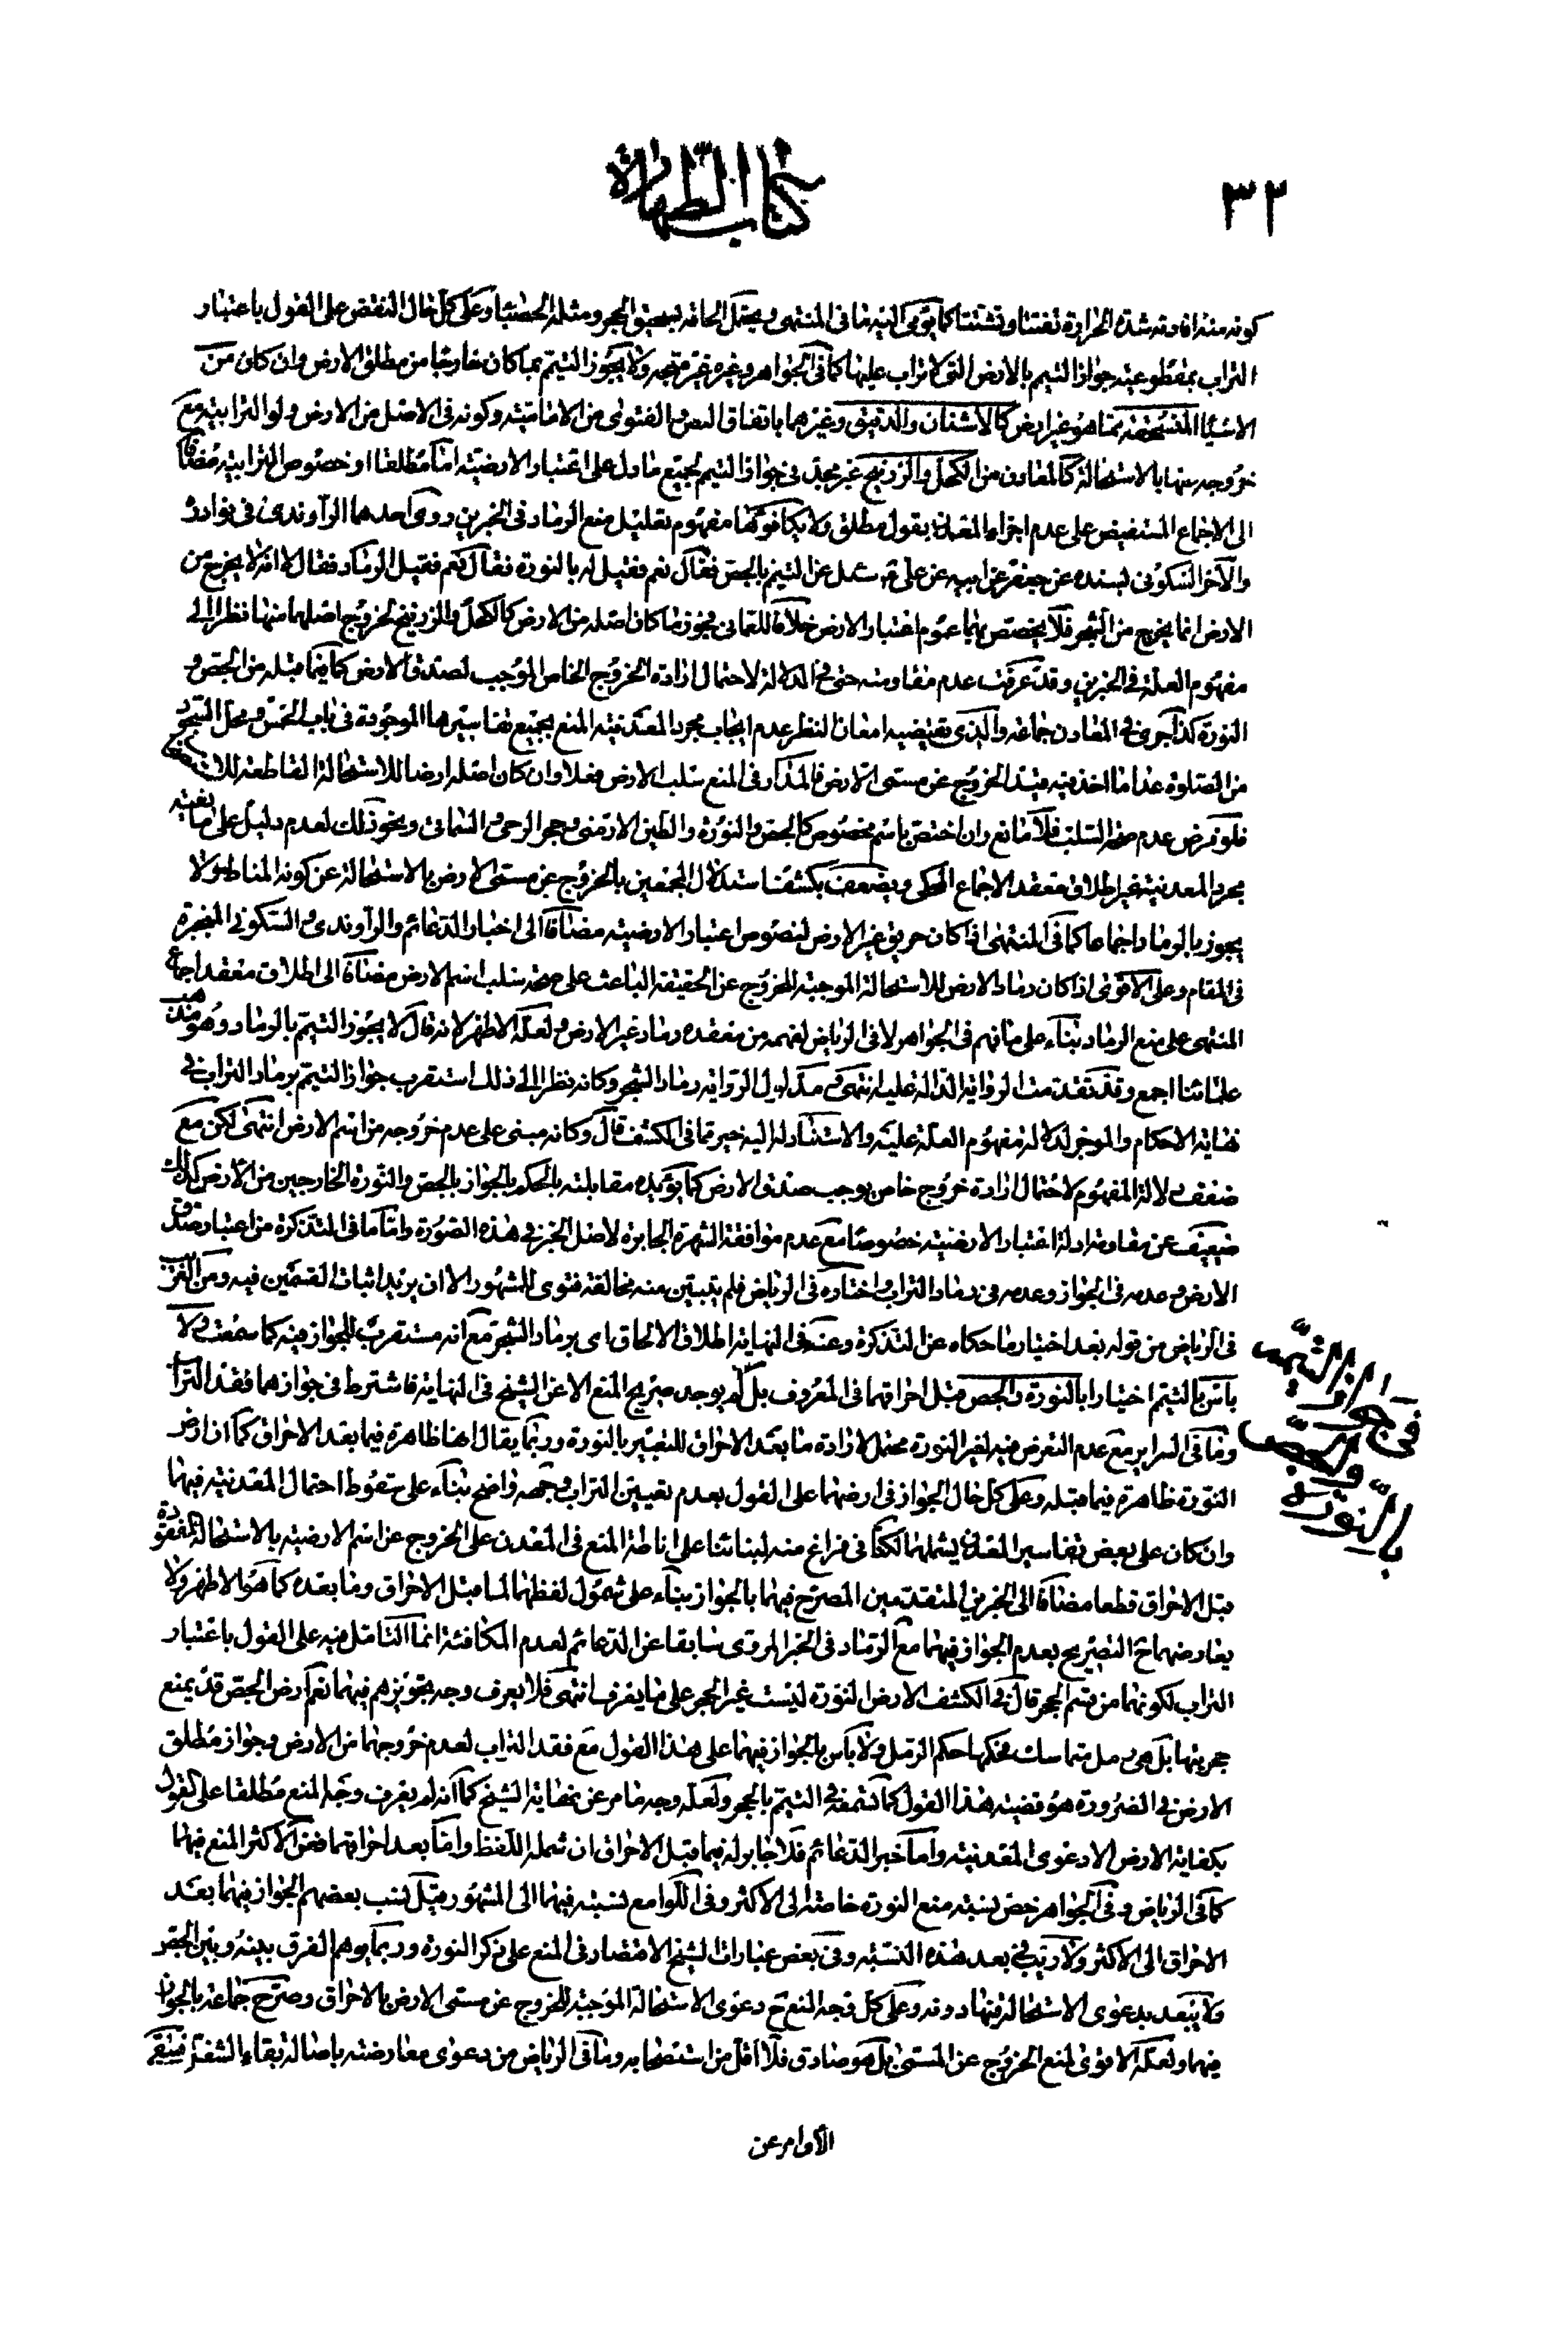 ٣٢
كتاب الطهارة
كونه منه افادته شدة الحرارة تفتتا وتشتتا كما يومى اليه ما فى المنتهى ويحتمل الحاقه بسحيق الحجر ومثله الحصباء وعلى كل حال النقض على القول باعتبار
التراب بمقطوعية جواز التيمم بالارض التى لا تراب عليها كما فى الجواهر وغيره غير متجه ولا يجوز التيمم بما كان خارجا من مطلق الارض وان كان من
الاشياء المنسحقة مما هو غير ارض كالاشنان والدقيق وغيرهما باتفاق النص والفتوى من الامامية وكونه فى الاصل من الارض ولو الترابية مع
خروجه منها بالاستحالة كالمعادن من الكحل والزرنيخ غير مجد فى جواز التيمم لجميع ما دل على اعتبار الارضية اما مطلقا او خصوص الترابية مضافا
الى الاجماع المستفيض على عدم اجزاء المعدن بقول مطلق ولا يكافؤها مفهوم تعليل منع الرماد فى الخبرين روى احدهما الراوندى فى نوادره
والآخر السكونى بسنده عن جعفر عن ابيه عن على ع سئل عن التيمم بالجص فقال نعم فقيل له بالنورة فقال نعم فقيل الرماد فقال لا انه لا يخرج من
الارض انما يخرج من الشجر فلا يخصص بهما عموم اعتبار الارض خلافا للعمانى فجوز ما كان اصله من الارض كالكحل والزرنيخ لخروج اصلهما منها نظرا الى
مفهوم العلة فى الخبرين وقد عرفت عدم مقاومته حتى فى الدلالة لاحتمال ارادة الخروج الخاص الموجب لصدق الارض كما فيما قبله من الجص و
النورة كذا جرى فى المعادن جماعة والذى يقتضيه امعان النظر عدم ايجاب مجرد المعدنية المنع بجميع تفاسيرها الموجودة فى باب الخمس ومحل السجود
من الصلوة عدا ما اخذ فيه قيد الخروج عن مسمى الارض فالمدار فى المنع سلب الارض فعلا وان كان اصله ارضا للاستحالة القاطعة
فلو فرض عدم صحة السلب فلا مانع وان اختص باسم مخصوص كالجص والنورة والطين الارمنى وحجر الرحى و ونحو ذلك لعدم دليل على مانعية
مجرد المعدنية غير اطلاق معقد الاجماع المحكى ويضعف بكشف استدلال المجمعين بالخروج عن مسمى الارض بالاستحالة عن كونه المناط ولا
يجوز بالرماد اجماعا كما فى المنتهى اذا كان حريق غير الارض لنصوص اعتبار الارضية مضافا الى اخبار الدعائم والراوندى والسكونى المنجبرة
فى المقام وعلى الاقوى اذا كان رماد الارض للاستحالة الموجبة للخروج عن الحقيقة الباعث على صحة سلب اسم الارض مضافا الى اطلاق معقد اجماع
المنتهى على منع الرماد بناء على ما فهم فى الجواهر لا فى الرياض لفهمه من معقده رماد غير الارض ولعله الاظهر لانه قال لا يجوز التيمم بالرماد وهو مذهب
علمائنا اجمع وقد تقدمت الرواية الدالة عليه انتهى ومدلول الرواية رماد الشجر وكانه نظرا الى ذلك استقرب جواز التيمم برماد التراب فى
نهاية الاحكام والموجز لدلالة مفهوم العلة عليه والاستناد له اليه خير مما فى الكشف قال وكانه مبنى على عدم خروجه من اسم الارض انتهى لكن مع
ضعف دلالة المفهوم لاحتمال ارادة خروج خاص يوجب صدق الارض كما يؤيده مقابلته بالحكم بالجواز بالجص والنورة الخارجين من الارض كذلك
ضعيف عن مقاومة ادلة اعتبار الارضية خصوصا مع عدم موافقة الشهرة الجابرة لاصل الخبر فى هذه الصورة واما ما فى التذكرة من اعتبار صدق
الارض وعدمه فى الجواز وعدمه فى رماد التراب واختاره فى الرياض فلم يتبين منه مخالفة فتوى المشهور الا ان يريد اثبات القسمين فيه ومن الغريب
فى الرياض من قوله بعد اختيار ما حكاه عن التذكرة وعنه فى النهاية اطلاق الالحاق اى برماد الشجر مع انه مستقرب للجواز فيه كما سمعت ولا
باس بالتيمم اختيارا بالنورة والجص قبل احراقهما فى المعروف بل لم يوجد صريح المنع الا عن الشيخ فى النهاية فاشترط فى جوازهما فقد التراب
وما فى السراير مع عدم التعرض فيه لغير النورة محتمل لارادة ما بعد الاحراق للتعبير بالنورة وربما يقال انها ظاهرة فيما بعد الاحراق كما ان ارض
النورة ظاهرة فيما قبله وعلى كل حال الجواز فى ارضهما على القول بعدم تعيين التراب وجهه واضح بناء على سقوط احتمال المعدنية فيهما
وان كان على بعض تفاسير المعدن يشملهما لكنا فى فراغ منه لبنائنا على اناطة المنع فى المعدن على الخروج عن اسم الارضية بالاستحالة المفقودة
قبل الاحراق قطعا مضافا الى الخبرين المتقدمين المصرح فيهما بالجواز بناء على شمول لفظهما لما قبل الاحراق وما بعده كما هو الاظهر ولا
يعارضهما ح التصريح بعدم الجواز فيهما مع الرماد فى الخبر المروى سابقا عن الدعائم لعدم المكافئة انما التامل فيه على القول باعتبار
التراب لكونهما من قسم الحجر قال فى الكشف الارض النورة ليست غير الحجر على ما يعرف انتهى فلا يعرف وجه تجويزهم فيهما نعم ارض الجص قد يمنع
حجريتها بل هى رمل متماسك فحكمها حكم الرمل ولا باس بالجواز فيهما على هذا القول مع فقد التراب لعدم خروجهما من الارض وجواز مطلق
الارض فى الضرورة هو قضية هذا القول كما فى التيمم بالحجر ولعله وجه ما مر عن نهاية الشيخ كما انه لم يعرف وجه المنع مطلقا على القول
بكفاية الارض الا دعوى المعدنية واما خبر الدعائم فلا جابر له فيما قبل الاحراق ان شمله اللفظ واما بعد احراقهما فعن الاكثر المنع فيهما
كما فى الرياض وفى الجواهر خص نسبة منع النورة خاصة الى الاكثر وفى اللوامع نسبته فيهما الى المشهور قيل نسب بعضهم الجواز فيهما بعد
الاحراق الى الاكثر ولا ريب فى بعد هذه النسبة وفى بعض عبارات الشيخ الاقتصار فى المنع على ذكر النورة وربما يوهم الفرق بينه وبين الجص
ولا يبعد بدعوى الاستحالة فيها دونه وعلى كل وجه المنع ح دعوى الاستحالة الموجبة للخروج عن مسمى الارض بالاحراق وصرح جماعة بالجواز
فيهما ولعله الاقوى لمنع الخروج عن المسمى بل هو صادق فلا اقل من استصحابه وما فى الرياض من دعوى معارضته باصالة بقاء
فى جواز التيمم
بالنورة والجص
الأوامر عن